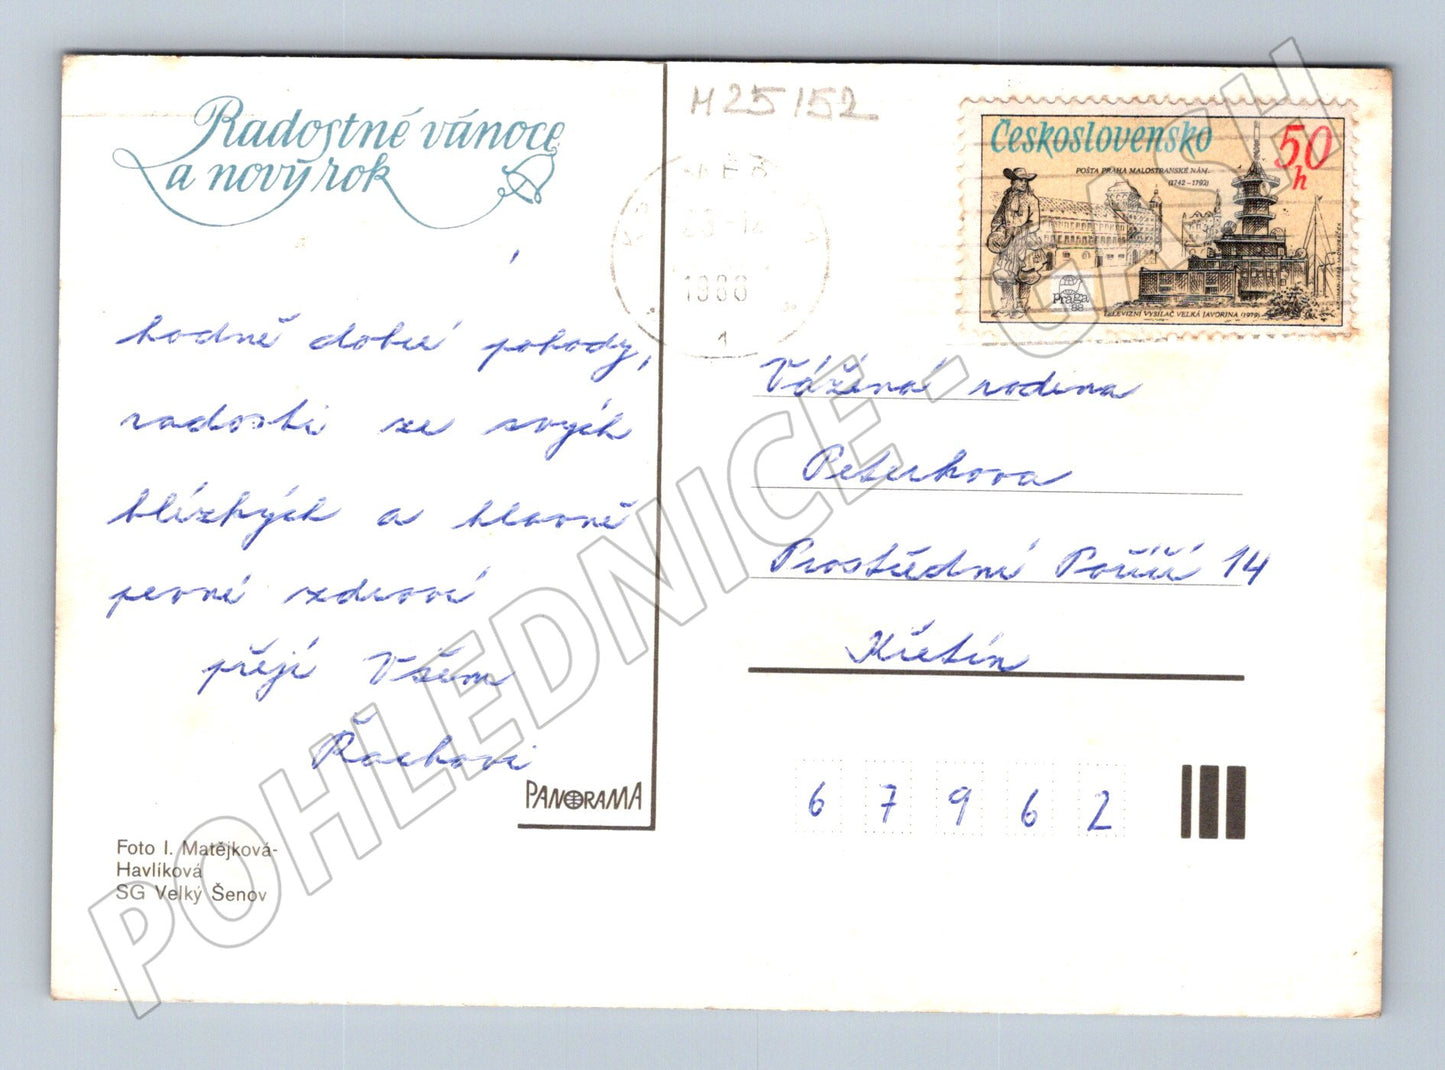 Radostné vánoce
a nový rok
hodně dobré pohody,
radosti ze svých
blízkých a hlavně
pevné zdraví
přejí Všem
Řachovi
PANORAMA
Foto I. Matějková-
Havlíková
SG Velký Šenov
M25/52
1988
1
Československo
50
h
POŠTA PRAHA MALOSTRANSKÉ NÁM.
(1742–1792)
Praga
88
TELEVIZNÍ VYSÍLAČ VELKÁ JAVORINA (1979)
Vážená rodina
Peterkova
Prostřední Poříčí 14
Křetín
67962
POHLEDNICE - CASH